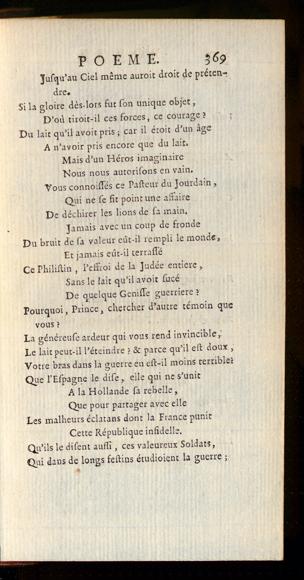 POEME. 369
Jusqu'au Ciel même auroit droit de préten-
dre.
Si la gloire dès-lors fut son unique objet,
D'où tiroit-il ces forces, ce courage?
Du lait qu'il avoit pris; car il étoit d'un âge
A n'avoir pris encore que du lait.
Mais d'un Héros imaginaire
Nous nous autorisons en vain.
Vous connoissés ce Pasteur du Jourdain,
Qui ne se fit point une affaire
De déchirer les lions de sa main.
Jamais avec un coup de fronde
Du bruit de sa valeur eût-il rempli le monde,
Et jamais eût-il terrassé
Ce Philistin, l'effroi de la Judée entiere,
Sans le lait qu'il avoit sucé
De quelque Genisse guerriere?
Pourquoi, Prince, chercher d'autre témoin que
vous?
La généreuse ardeur qui vous rend invincible,
Le lait peut-il l'éteindre? & parce qu'il est doux,
Votre bras dans la guerre en est-il moins terrible?
Que l'Espagne le dise, elle qui ne s'unit
A la Hollande sa rebelle,
Que pour partager avec elle
Les malheurs éclatans dont la France punit
Cette République infidelle.
Qu'ils le disent aussi, ces valeureux Soldats,
Qui dans de longs festins étudioient la guerre;